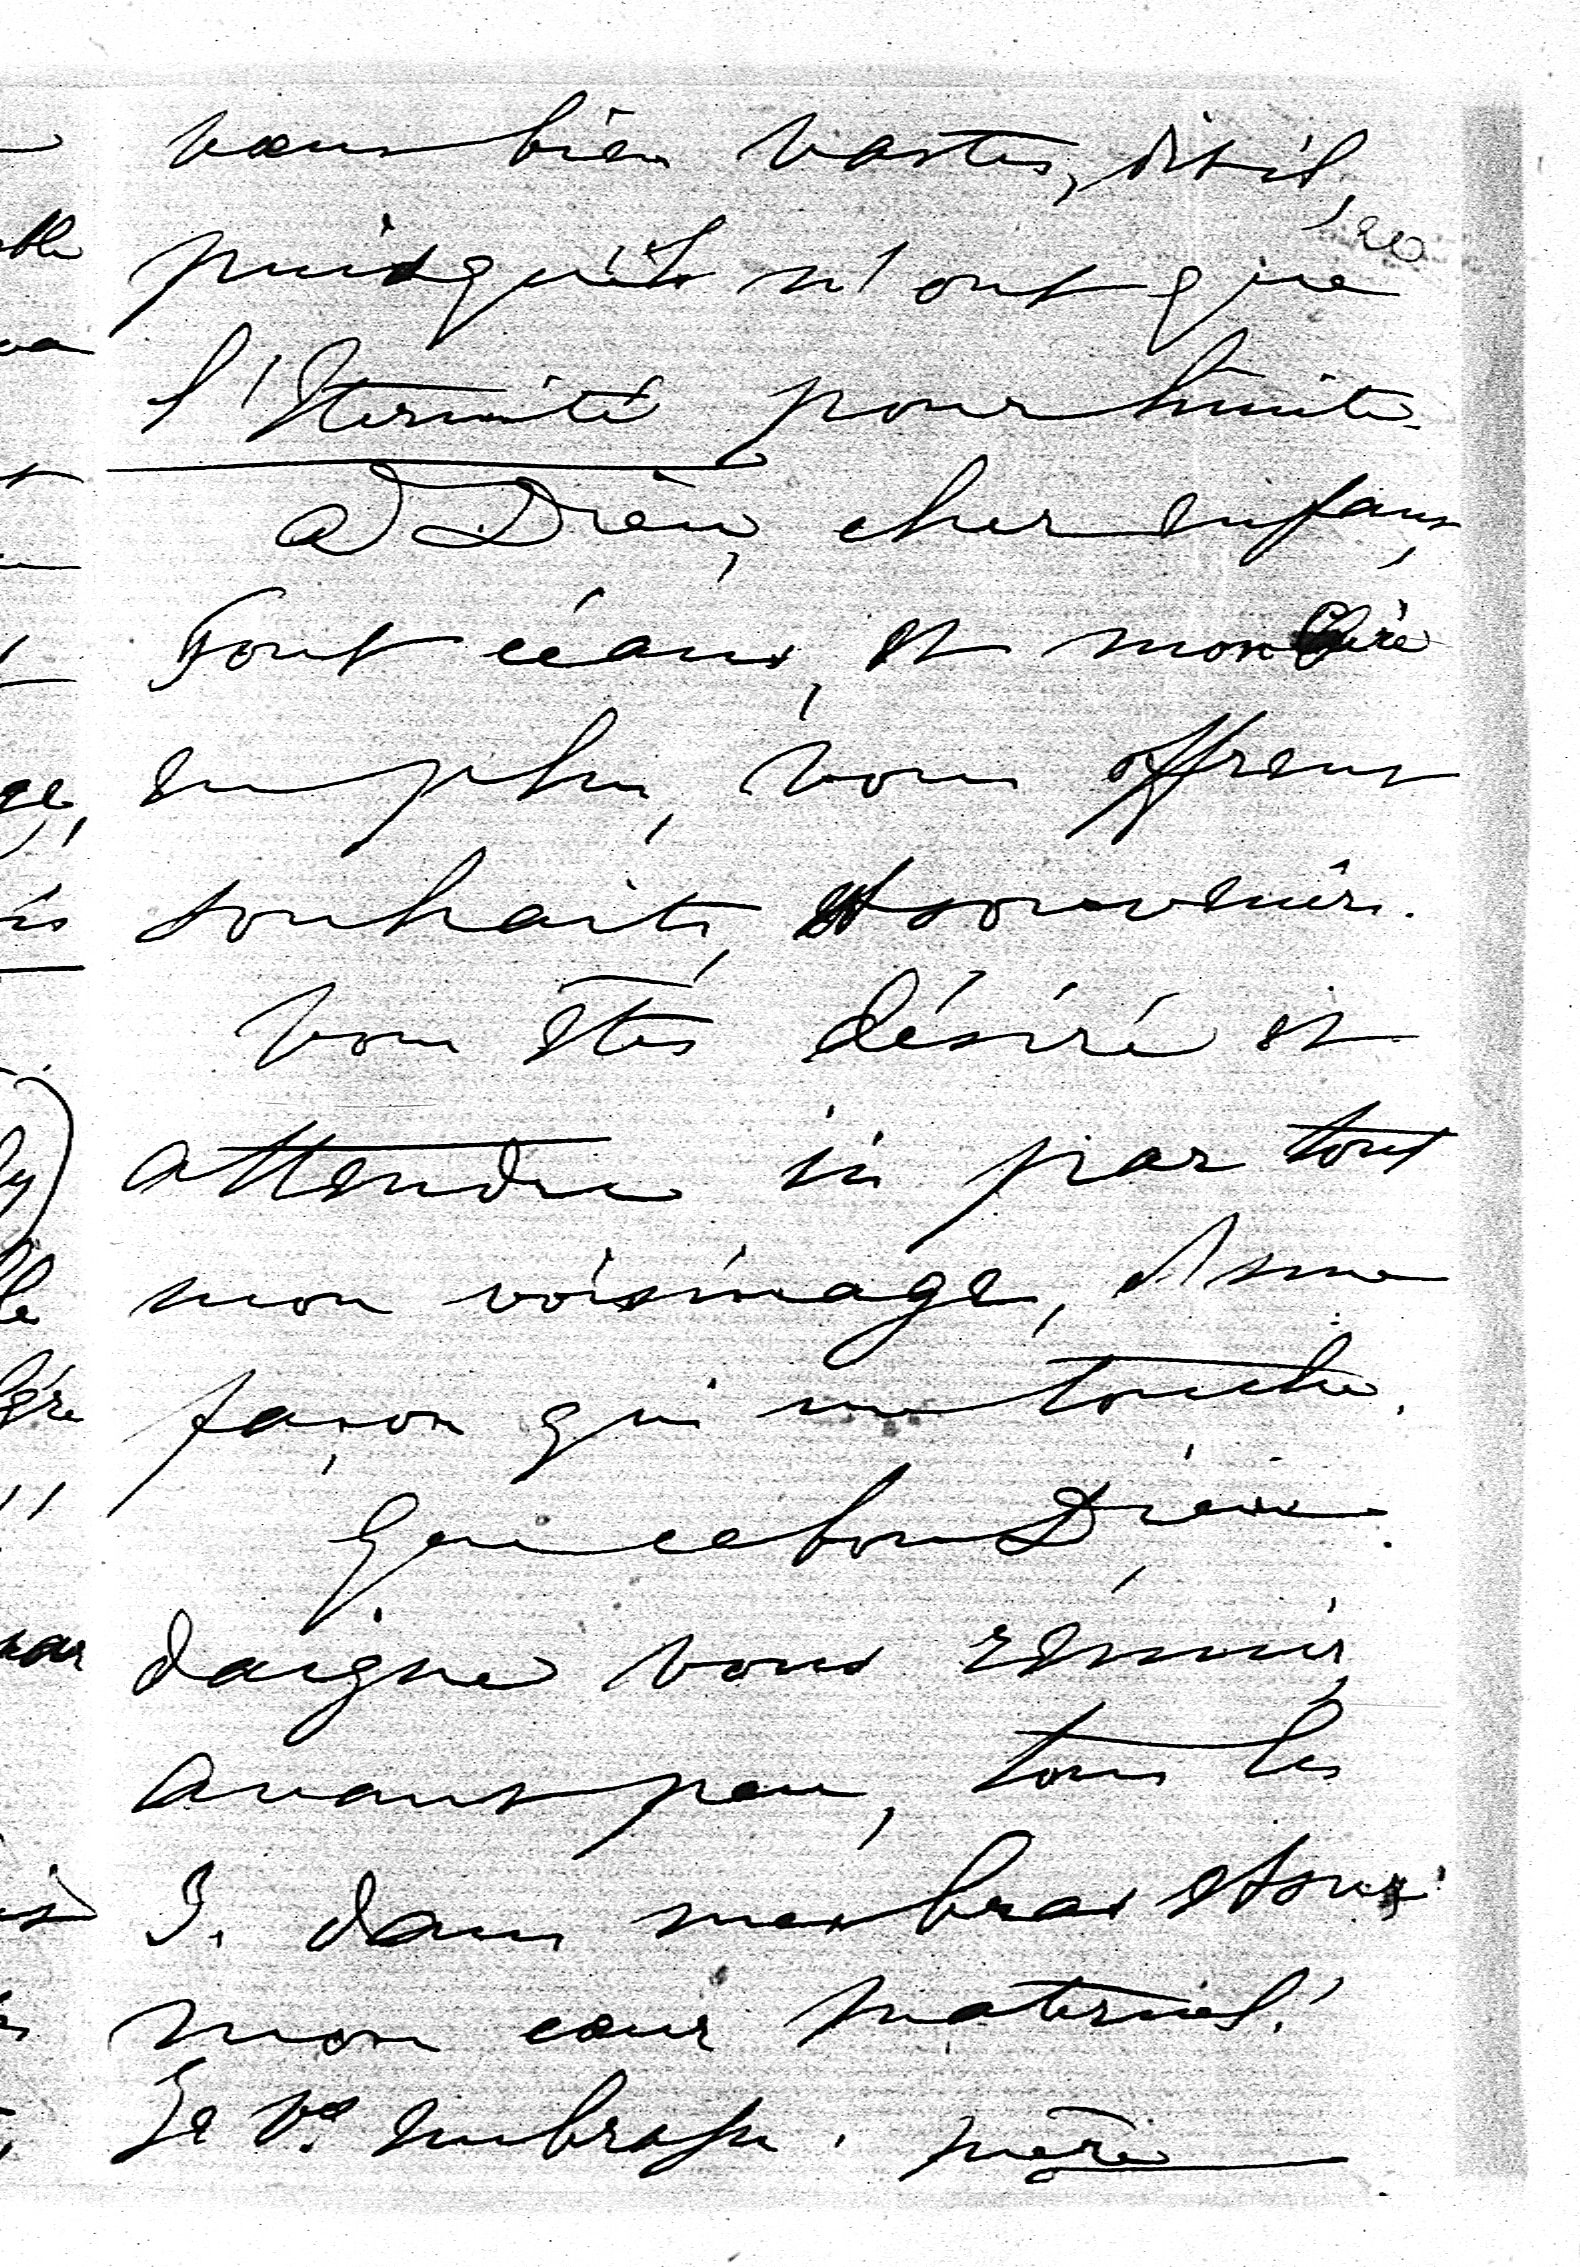 vœux bien vastes, dit-il,
puisqu'ils n'ont que
l'Eternité pour limite.
a Dieu, cher enfant,
Tout céans, et mon Père
en plus, vous offrent
souhaits, et souvenirs.
Vous êtes désiré et
attendu ici par tout
mon voisinage, d'une
façon qui me touche.
Que ce bon Dieu
daigne vous réunir,
avant peu, tous les
3. dans mes bras et sur
mon cœur maternel!
Je vs embrasse. mère